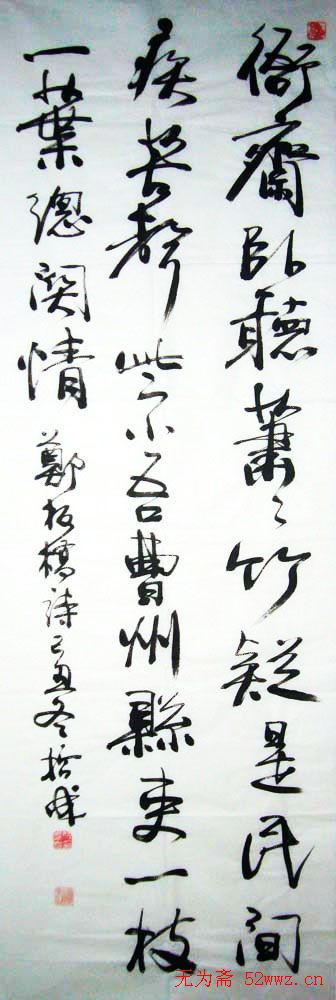 衙齋臥聽蕭々竹疑是民間
疾苦聲些小吾曹州縣吏一枝
一葉總関情鄭板橋詩己丑冬
无为斋 52wwz.cn